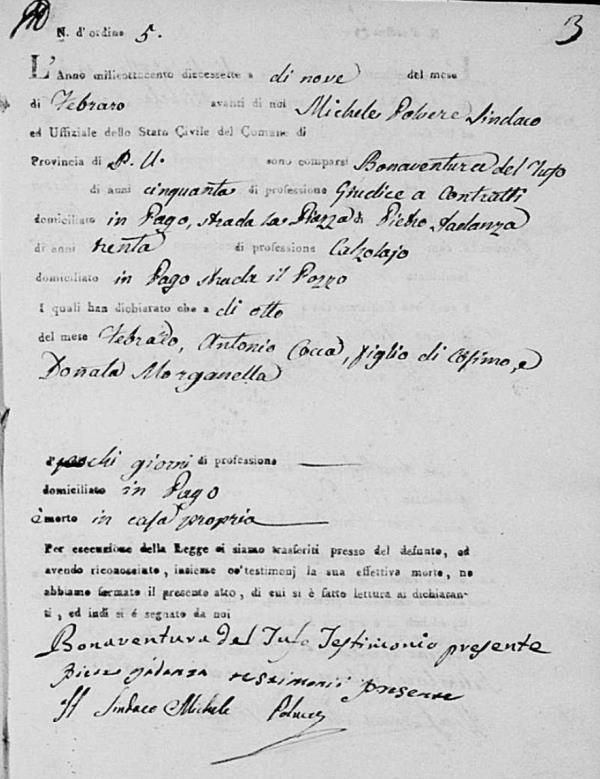 3
N. d'ordine 5.
L'Anno milleottocento diecessette a di nove del mese
di Febraro avanti di noi Michele Polvere Sindaco
ed Uffiziale dello Stato Civile del Comune di
Provincia di P. U. sono comparsi Bonaventura del Tufo
di anni cinquanta di professione Giudice a Contratti
domiciliato in Pago, strada la Piazza & Pietro
di anni trenta di professione Calzolajo
domiciliato in Pago strada il Pozzo
I quali han dichiarato che a di otto
del mese Febraro, Antonio Cocca, figlio di Cosimo, e
Donata Morganella
pochi giorni di professione
domiciliato in Pago
è morto in casa propria
Per esecuzione della Legge ci siamo trasferiti presso del defunto, ed
avendo riconosciuto, insieme co' testimonj la sua effettiva morte, ne
abbiamo formato il presente atto, di cui si è fatto lettura ai dichiaran-
ti, ed indi si è segnato da noi
Bonaventura del Tufo Testimonio presente
presente
Il Sindaco Michele Polvere